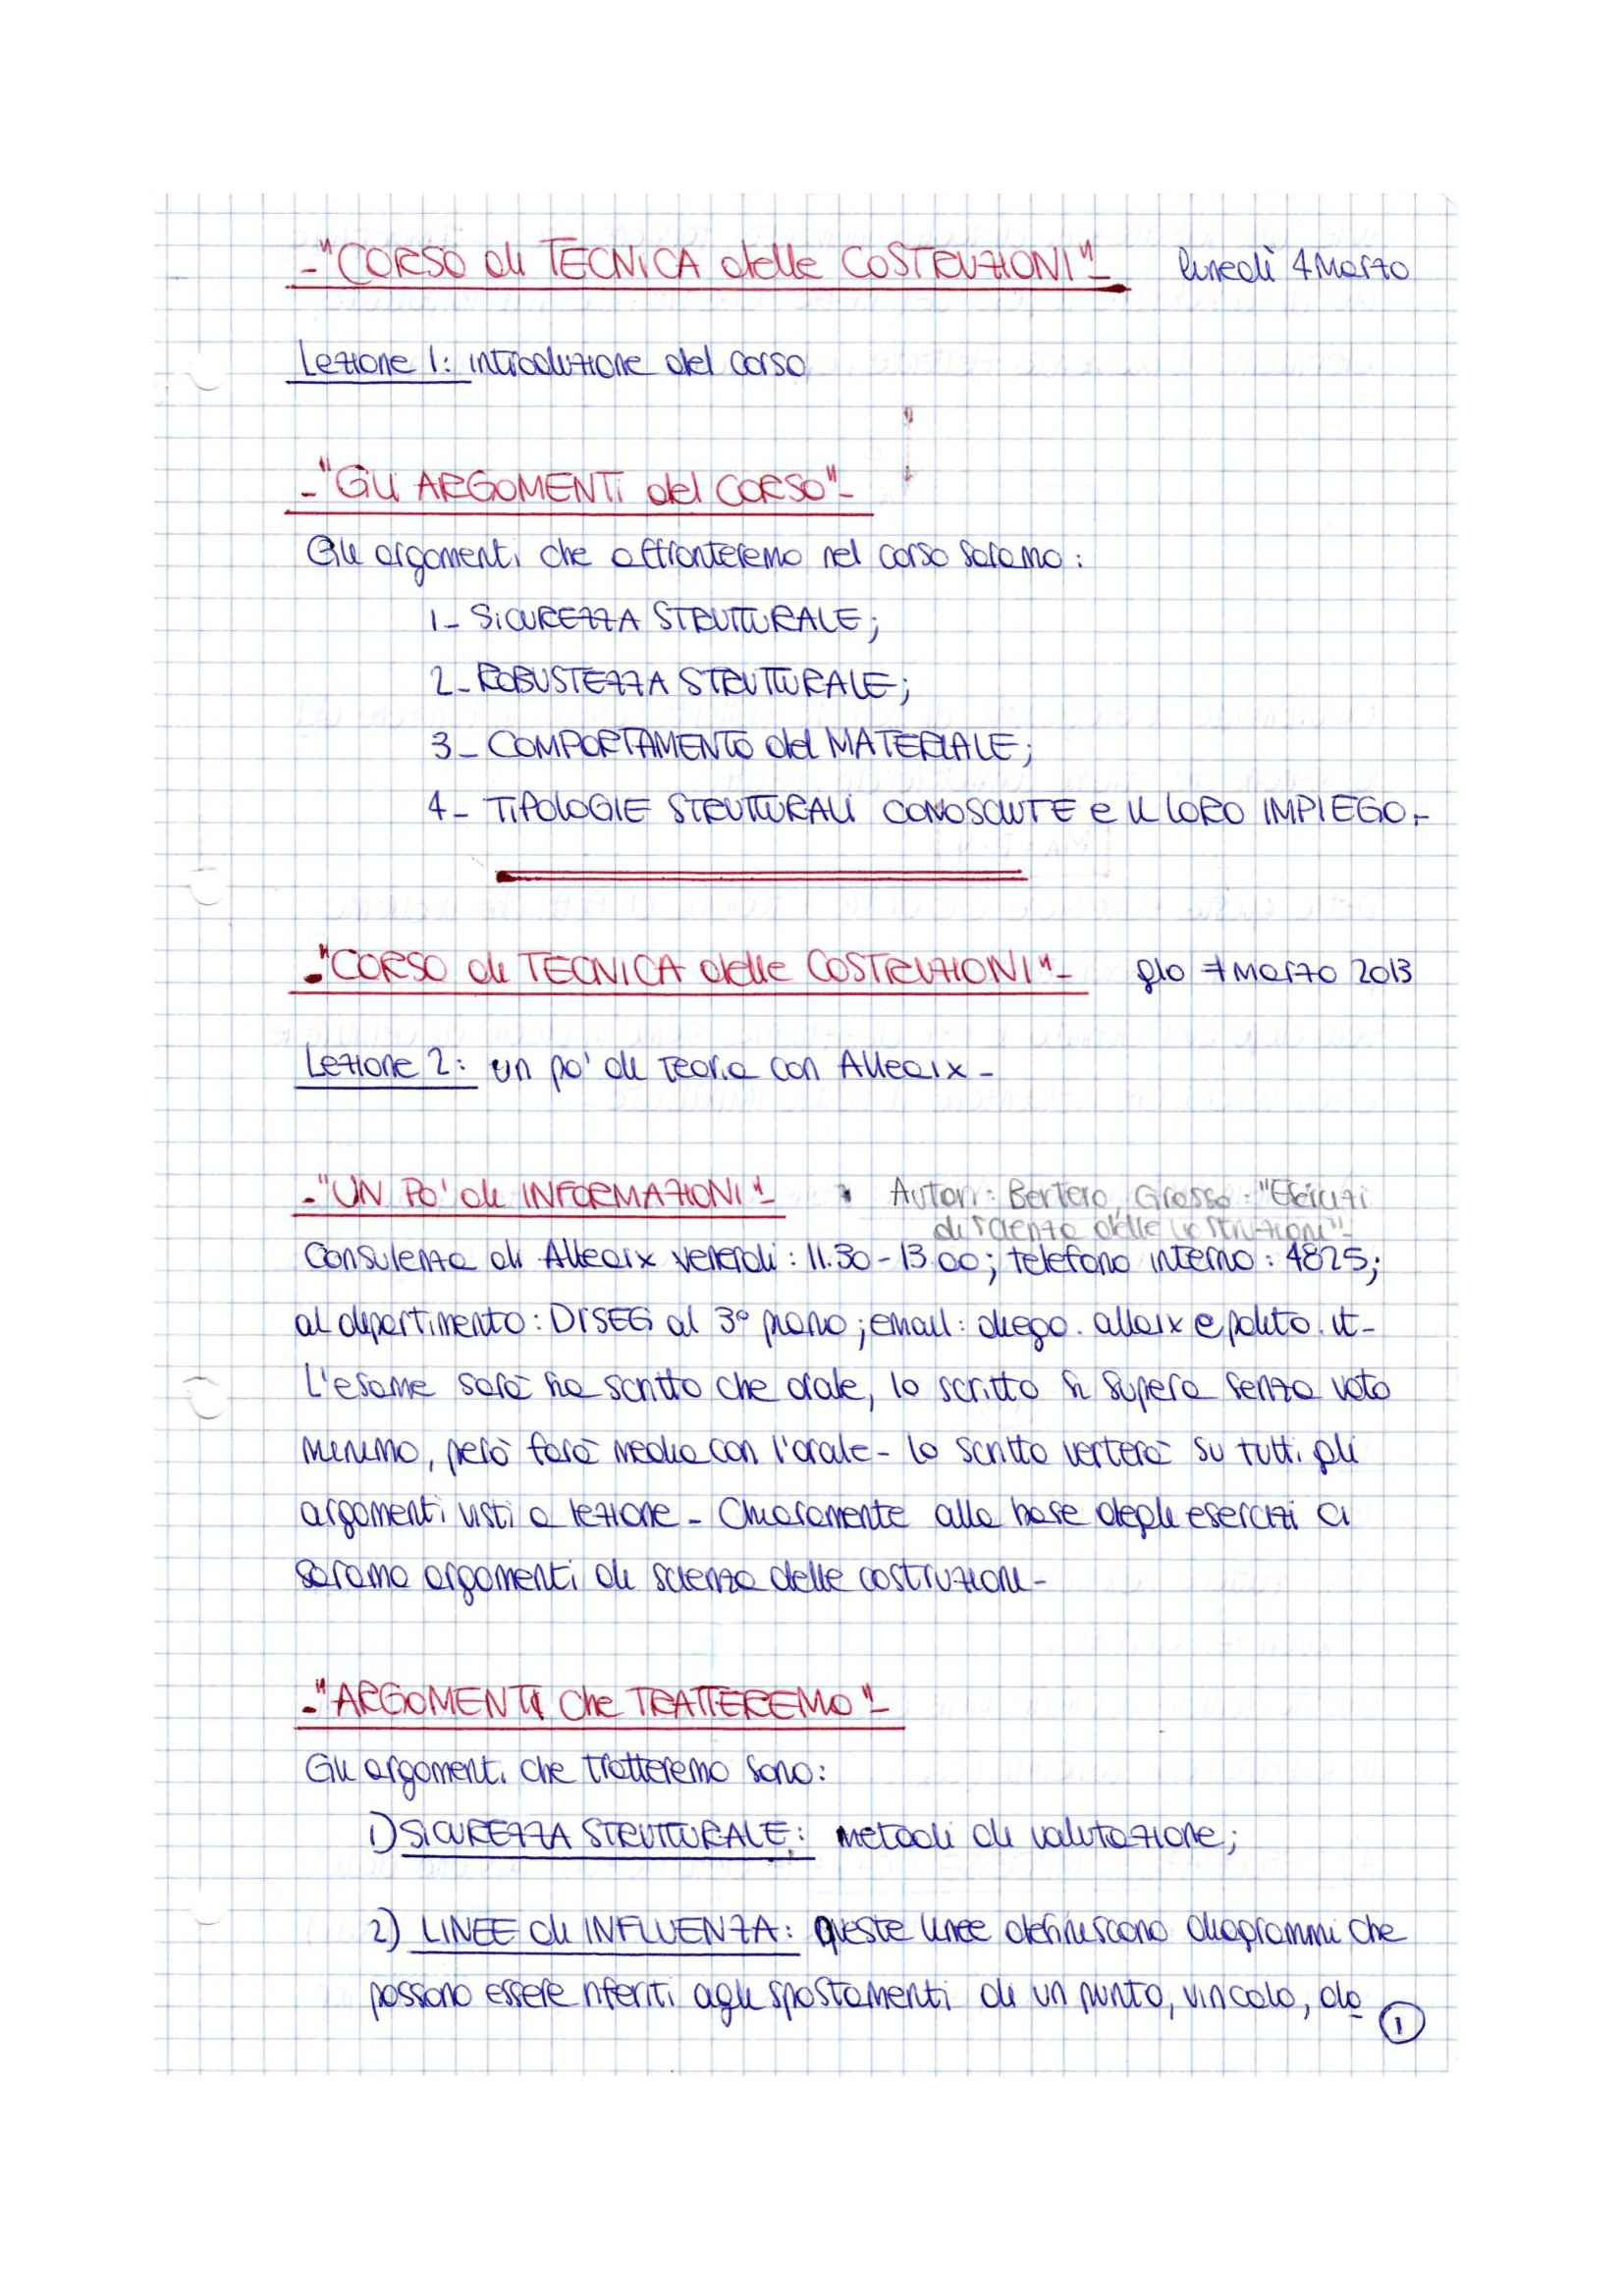 -"CORSO di TECNICA delle COSTRUZIONI"- lunedì 4 Marzo
Lezione 1: introduzione del corso
-"Gli ARGOMENTi del CORSO"-
Gli argomenti che affronteremo nel corso saranno:
1- SiCUREZZA STRUTTURALE;
2- ROBUSTEZZA STRUTTURALE;
3- COMPORTAMENTO del MATERIALE;
4- TIPOLOGIE STRUTTURALi CONOSCIUTE e il LORO IMPIEGO.-
-"CORSO di TECNICA delle COSTRUZIONI"- gio 7 Marzo 2013
Lezione 2: un po' di teoria con Alleaix-
-"UN PO' di INFORMAZIONI"- Autori: Bertero, Grasso: "Esercizi
di scienza delle costruzioni"-
Consulenza di Alleaix venerdì: 11.30-13.00; telefono interno: 4825;
al dipartimento: DISEG al 3° piano; email: diego.allaix@polito.it-
L'esame sarà sia scritto che orale, lo scritto si supera senza voto
minimo, però farà media con l'orale- lo scritto verterà su tutti gli
argomenti visti a lezione- Chiaramente alla base degli esercizi ci
saranno argomenti di scienza delle costruzioni-
-"ARGOMENTI Che TRATTEREMO"-
Gli argomenti che tratteremo sono:
1) SICUREZZA STRUTTURALE: metodi di valutazione;
2) LINEE di INFLUENZA: queste linee definiscono diagrammi che
possono essere riferiti agli spostamenti di un punto, vincolo, da
1